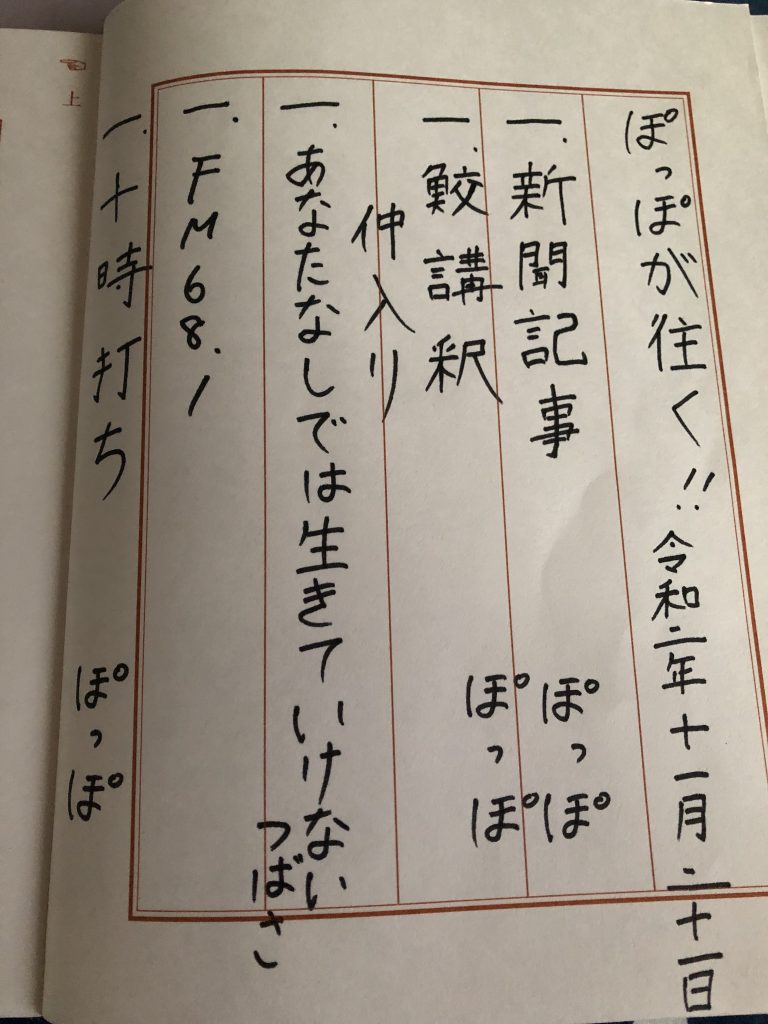 ぽっぽが往く!! 令和二年十一月二十一日
一、新聞記事 ぽっぽ
一、鮫講釈 ぽっぽ
仲入り
一、あなたなしでは生きていけない つばさ
一、FM68.1
一、十時打ち ぽっぽ
☜上